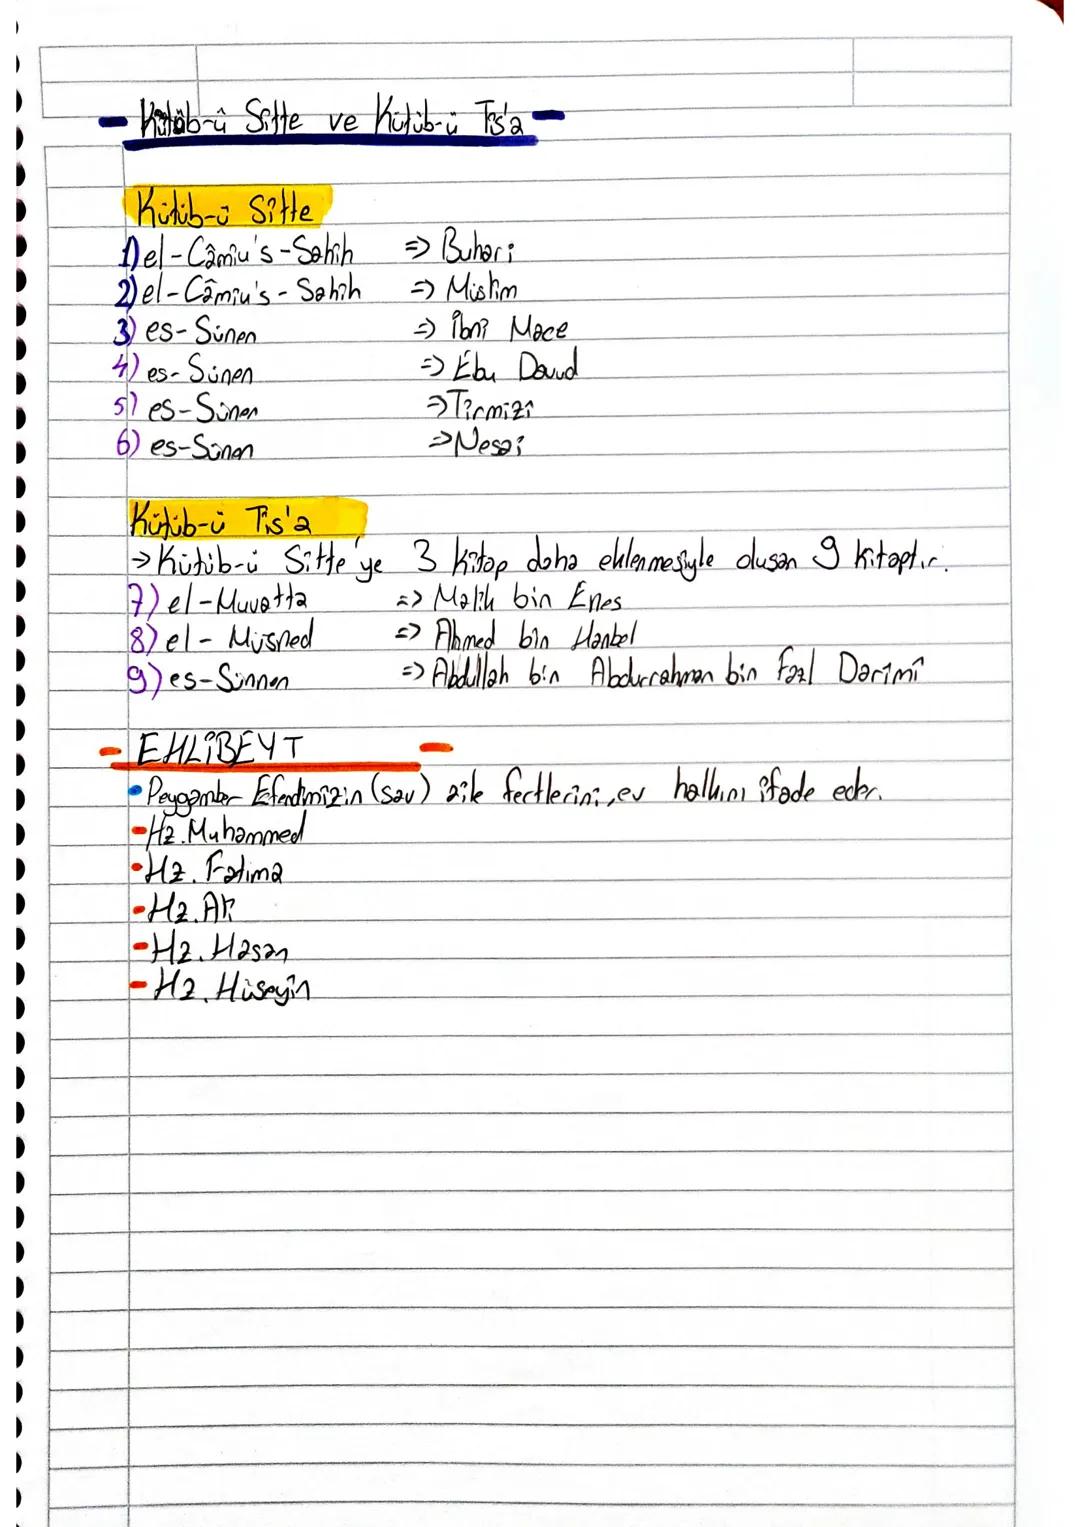 - Kütüb-ü Sitte ve Kütüb-ü Tis'a -
Kütüb-ü Sitte
1) el-Câmiu's-Sahih => Buhari
2) el-Câmiu's-Sahih => Müslim
3) es-Sünen => İbni Mace
4) es-Sünen => Ebu Davud
5) es-Sünen => Tirmizi
6) es-Sünen => Nesai
Kütüb-ü Tis'a
→ Kütüb-ü Sitte'ye 3 kitap daha eklenmesiyle oluşan 9 kitaptır.
7) el-Muvatta => Malik bin Enes
8) el-Müsned => Ahmed bin Hanbel
9) es-Sünnen => Abdullah bin Abdurrahman bin Fazl Darimî
- EHLİBEYT -
• Peygamber Efendimizin (sav) aile fertlerini, ev halkını ifade eder.
- Hz. Muhammed
- Hz. Fatima
- Hz. Ali
- Hz. Hasan
- Hz. Hüseyin